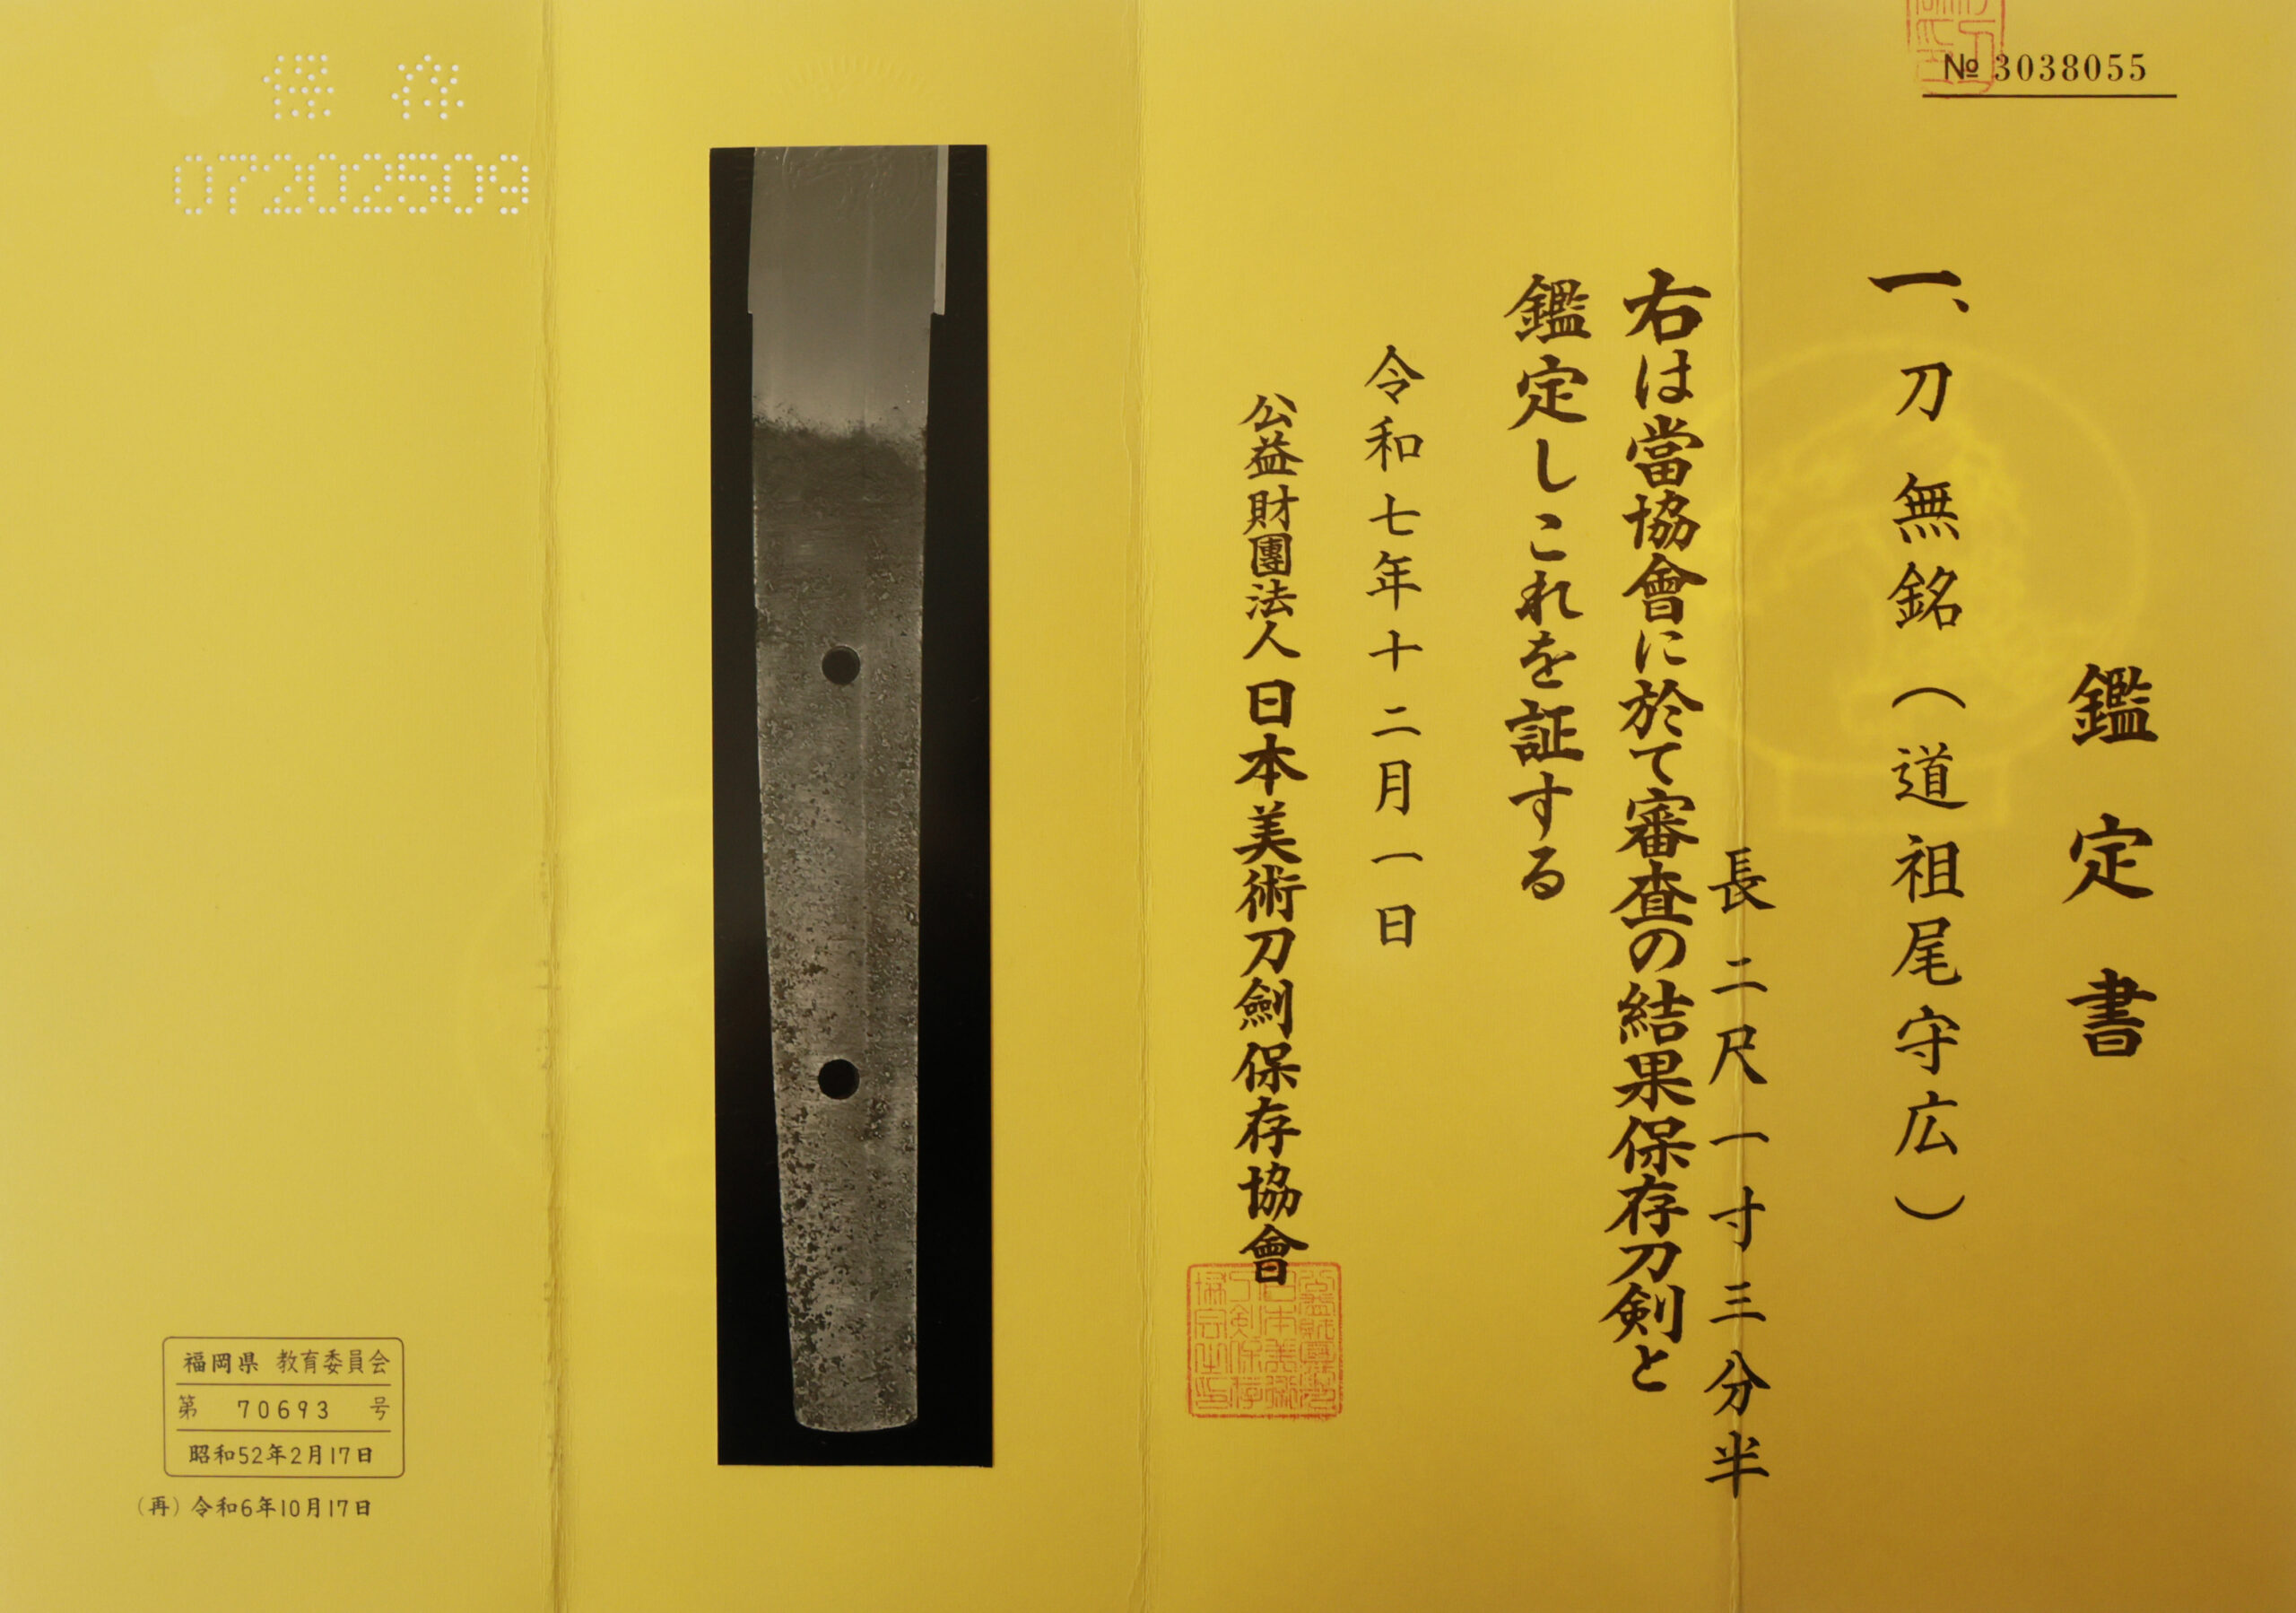 № 3038055
鑑定書
一、刀 無銘（道祖尾守広）
長二尺一寸三分半
右は當協會に於て審査の結果保存刀剣と
鑑定しこれを証する
令和七年十二月一日
公益財團法人 日本美術刀劍保存協會
保存
07202509
福岡県 教育委員会
第 70693 号
昭和52年2月17日
(再) 令和6年10月17日